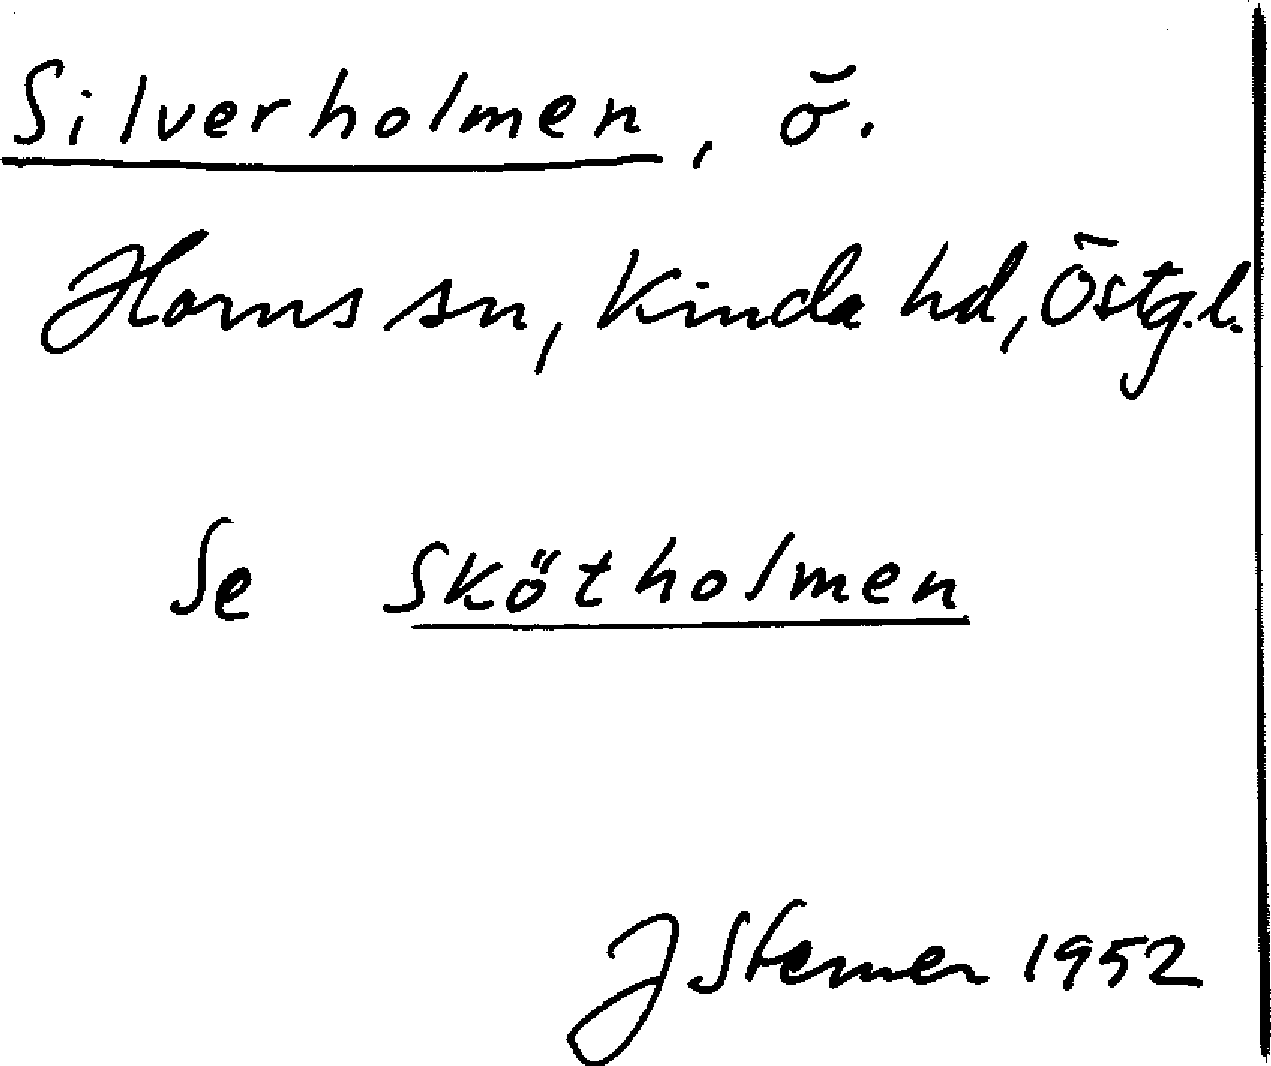 Silverholmen, ö.
Horns sn, Kinda hd, Östg.l.
Se Skötholmen
J Sterner 1952